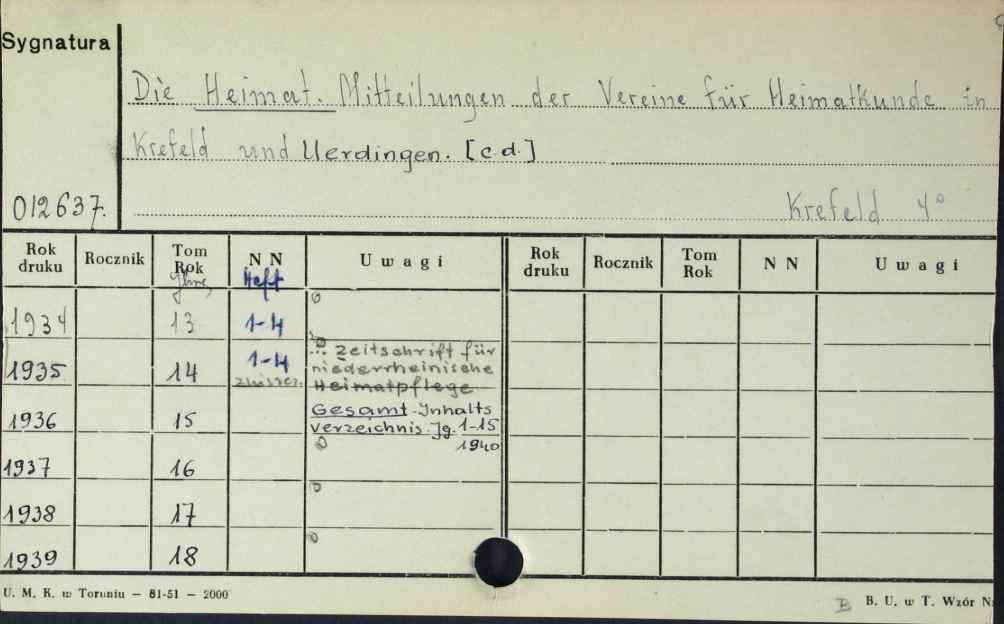 Sygnatura
Die Heimat. Mitteilungen der Vereine für Heimatkunde in
Krefeld und Uerdingen. [c.d.]
012637. Krefeld 4°
Rok druku Rocznik Tom Rok N N Uwagi Rok druku Rocznik Tom Rok N N Uwagi
Heft
1934 13 1-4
1935 14 1-4 ... Zeitschrift für
niederrheinische
Heimatpflege
1936 15 Gesamt-Inhalts
verzeichnis. Jg. 1-15
1940
1937 16
1938 17
1939 18
U. M. K. w Toruniu — 81-51 — 2000
B B. U. w T. Wzór